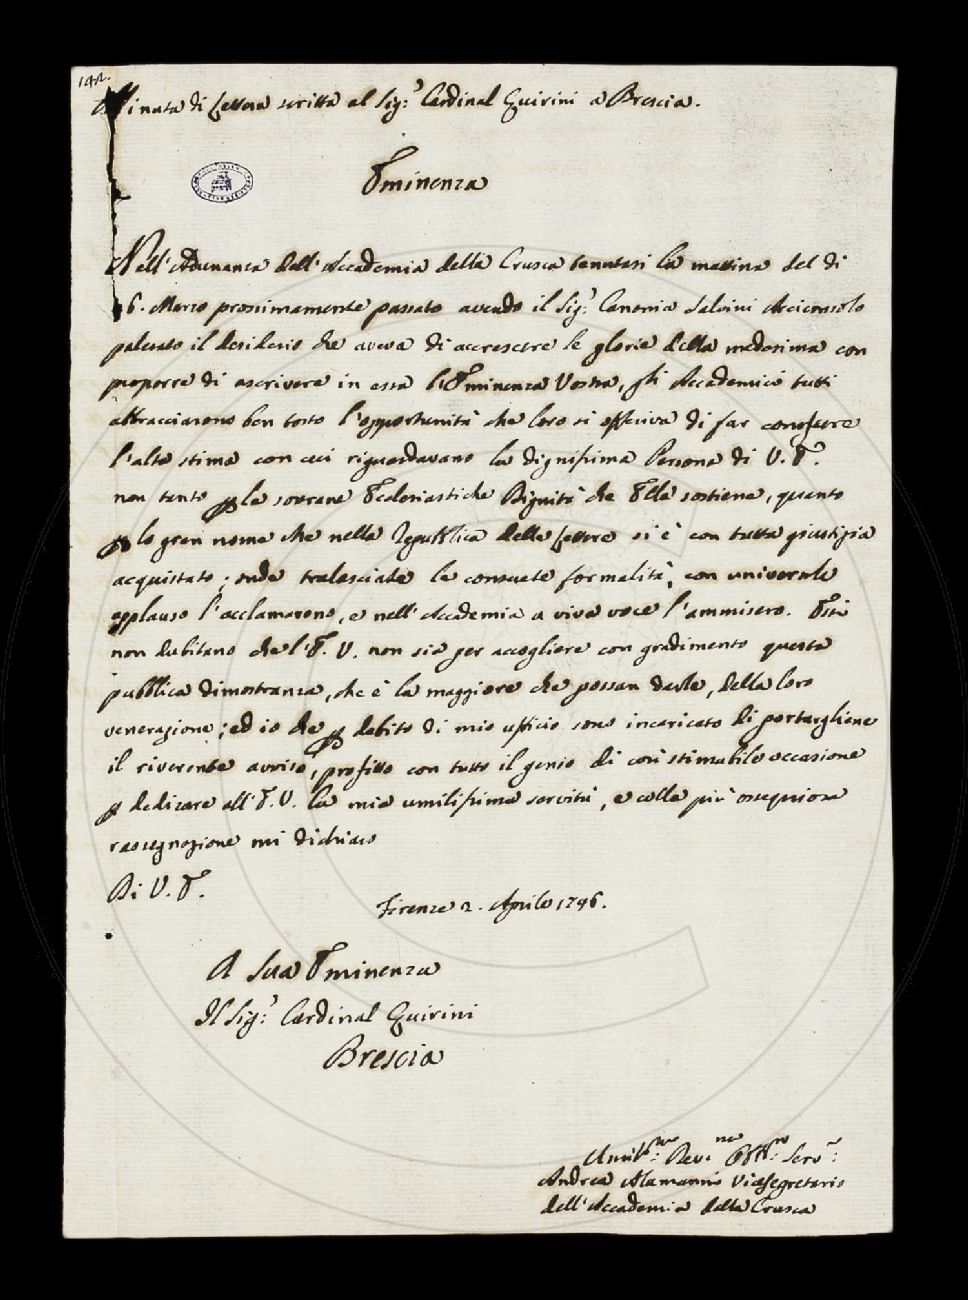 142.
Minuta di Lettera scritta al Sig.r Cardinal Quirini a Brescia.
Eminenza
Nell'Adunanza dell'Accademia della Crusca tenutasi la mattina del di
6. Marzo prossimamente passato avendo il Sig.r Canonico Salvini Arciconsolo
palesato il desiderio che aveva di accrescere le glorie della medesima con
proporre di ascrivere in essa l'Eminenza Vostra, gli Accademici tutti
abbracciarono ben tosto l'opportunità che loro si offeriva di far conoscere
l'alta stima con cui riguardavano la dignissima Persona di V. E.
non tanto p la sovrana Ecclesiastiche Dignità che Ella sostiene, quanto
p lo gran nome che nella Repubblica delle Lettere si è con tutta giustizia
acquistato; onde tralasciate le consuete formalità, con universale
applauso l'acclamarono, e nell'Accademia a viva voce l'ammisero. Essi
non dubitano che l'E. V. non sia per accogliere con gradimento questa
pubblica dimostranza, che è la maggiore che possan darle, della loro
venerazione; ed io che p debito di mio ufficio sono incaricato di portargliene
il riverente avviso, profitto con tutto il genio di così stimabile occasione
p dedicare all'E. V. la mia umilissima servitù, e colla più ossequiosa
rassegnazione mi dichiaro
Di V. E.
Firenze 2. Aprile 1746.
A Sua Eminenza
Il Sig.r Cardinal Quirini
Brescia
Umil.mo Dev.mo Obb.mo Serv.e
Andrea Alamanni Vicesegretario
dell'Accademia della Crusca